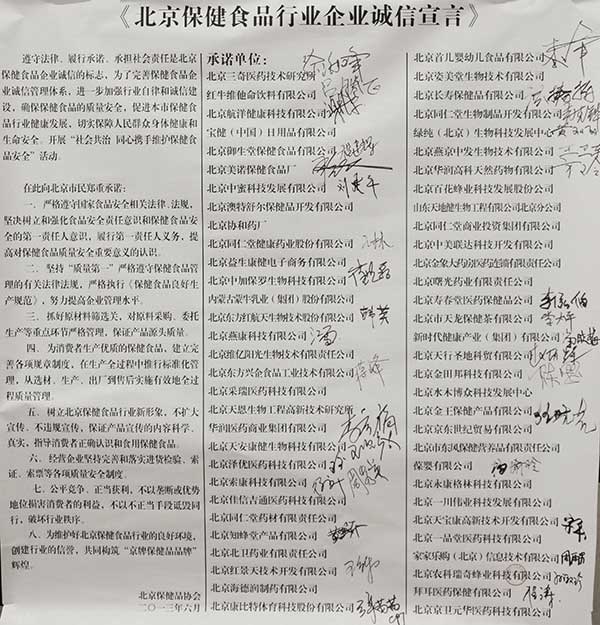 《北京保健食品行业企业诚信宣言》
遵守法律、履行承诺。承担社会责任是北京
保健食品企业诚信的标志，为了完善保健食品企业
诚信管理体系，进一步加强行业自律和诚信建
设，确保保健食品的质量安全，促进本市保健食品
行业健康发展，切实保障人民群众身体健康和
生命安全。开展“社会共治 同心携手维护保健食
品安全”活动。
在此向北京市民郑重承诺：
一、严格遵守国家食品安全相关法律、法规，
坚决树立和强化食品安全责任意识和保健食品安全
的第一责任人意识，履行第一责任人义务，提
高对保健食品质量安全重要意义的认识。
二、坚持“质量第一”严格遵守保健食品管理
的有关法律法规，严格执行《保健食品良好生
产规范》，努力提高企业管理水平。
三、抓好原材料筛选关，对原料采购、委托
生产等重点环节严格管理，保证产品源头质量。
四、为消费者生产优质的保健食品，建立完
善各项规章制度，在生产全过程中推行标准化管
理，从选材、生产、出厂到售后实施有效地全过
程质量管理。
五、树立北京保健食品行业新形象，不扩大
宣传、不违规宣传，保证产品宣传的内容科学、
真实，指导消费者正确认识和食用保健食品。
六、经营企业坚持完善和落实进货检验、索
证、索票等各项质量安全制度。
七、公平竞争、正当获利，不以垄断或优势
地位损害消费者的利益，不以不正当手段诋毁同
行，破坏行业秩序。
八、为维护好北京保健食品行业的良好环境，
创建行业的信誉，共同构筑“京牌保健品品牌”
辉煌。
北京保健品协会
二〇一三年六月
承诺单位：
北京三奇医药技术研究所
红牛维他命饮料有限公司
北京航洋健康科技有限公司
宝健（中国）日用品有限公司
北京御生堂保健食品有限公司
北京美诺保健食品厂
北京中蜜科技发展有限公司
北京澳特舒尔保健品开发有限公司
北京协和药厂
北京同仁堂健康药业股份有限公司
北京益生康健电子商务有限公司
北京中加保罗生物科技有限公司
内蒙古蒙牛乳业（集团）股份有限公司
北京东方红航天生物技术股份有限公司
北京燕康科技有限公司
北京维亿阳光生物技术有限责任公司
北京东方兴企食品工业技术有限公司
北京采瑞医药科技有限公司
北京天恩生物工程高新技术研究所
华润医药商业集团有限公司
北京天安康健生物科技有限公司
北京泽优医药科技有限公司
北京索康科技有限公司
北京佳信吉通医药科技有限公司
北京同仁堂药材有限责任公司
北京知蜂堂产品有限公司
北京北卫药业有限责任公司
北京红景天技术开发有限公司
北京海德润制药有限公司
北京康比特体育科技股份有限公司
北京首儿婴幼儿食品有限公司
北京姿美堂生物技术有限公司
北京长寿保健品有限公司
北京同仁堂生物制品开发有限公司
绿纯（北京）生物科技发展中心
北京燕京中发生物技术有限公司
北京华润高科天然药物有限公司
北京百花蜂业科技发展股份公司
山东天地健生物工程有限公司北京分公司
北京同仁堂商业投资集团有限公司
北京中美联达科技开发有限公司
北京金象大药房医药连锁有限责任公司
北京曙光药业有限责任公司
北京寿春堂医药保健品公司
北京市天龙保健茶有限公司
新时代健康产业（集团）有限公司
北京天行圣地科贸有限公司
北京金田邦科技有限公司
北京水木博众科技发展中心
北京金王保健产品有限公司
北京东世纪贸易有限公司
北京市东风保健营养品有限责任公司
葆婴有限公司
北京永康格林科技有限公司
北京一川伟业科技发展有限公司
北京天宝康高新技术开发有限公司
北京一品堂医药科技有限公司
家家乐购（北京）信息技术有限公司
北京农科瑞奇蜂业科技有限公司
拜耳医药保健有限公司
北京京卫元华医药科技有限公司